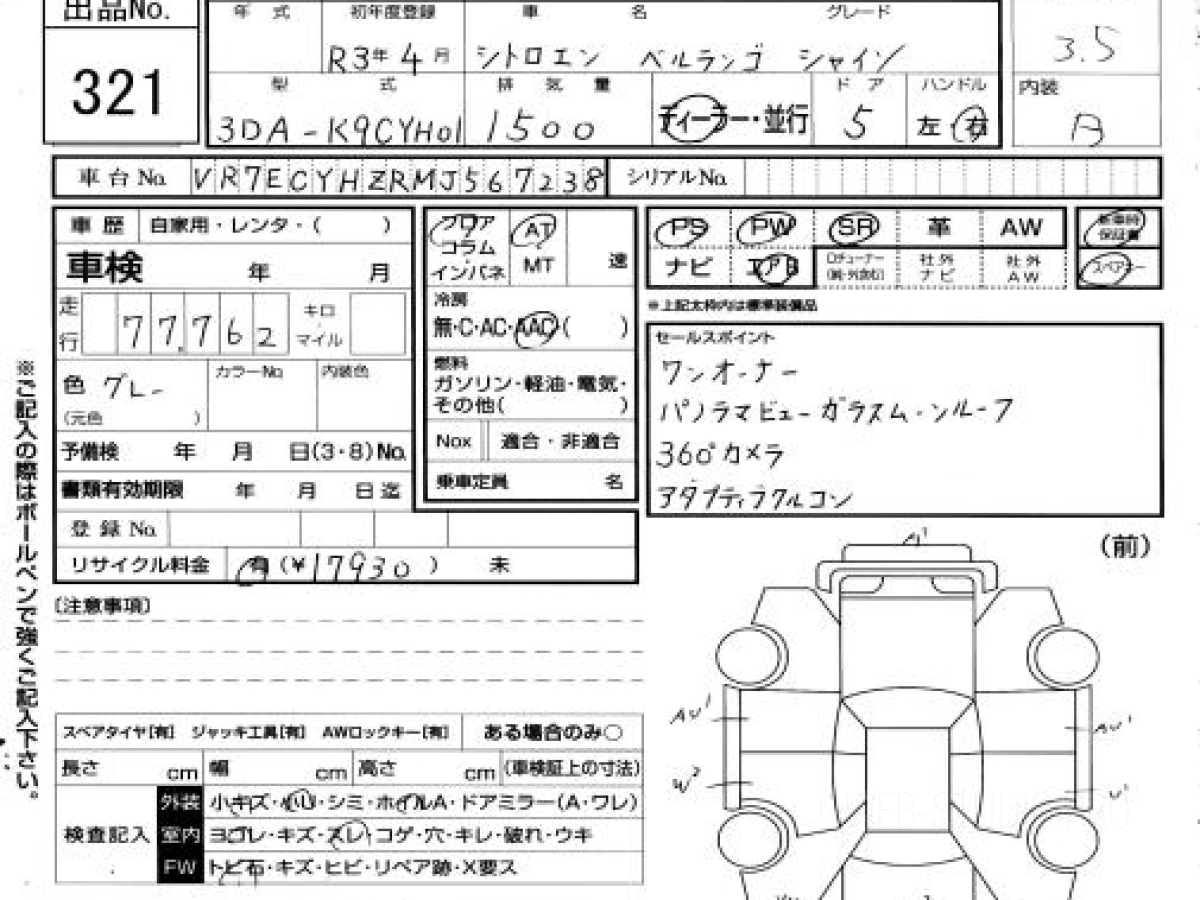 出品No.
321
年 式
初年度登録
R3年 4月
車 名
グレード
シトロエン ベルランゴ シャイン
3.5
型 式
3DA-K9CYH01
排 気 量
1500
ディーラー・並行
ド ア
5
ハンドル
左・右
内装
B
車台No.
VR7ECYHZRMJ567238
シリアルNo.
車 歴
自家用・レンタ・( )
車検 年 月
走行
77,762
キロ
マイル
色 グレー
(元色 )
カラーNo.
内装色
予備検 年 月 日(3・8)No.
書類有効期限 年 月 日迄
登録No.
リサイクル料金 有 (¥17930) 未
フロア
コラム
インパネ
AT
MT
速
冷房
無・C・AC・AAC( )
燃料
ガソリン・軽油・電気・
その他( )
Nox
適合・非適合
乗車定員 名
PS
PW
SR
革
AW
ナビ
エアB
社外
ナビ
社外
AW
新車時
保証書
スペアキー
※上記太枠内は標準装備品
セールスポイント
ワンオーナー
パノラマビューガラスムーンルーフ
360°カメラ
アダプティブクルコン
※ご記入の際はボールペンで強くご記入下さい。
(注意事項)
スペアタイヤ[有] ジャッキ工具[有] AWロックキー[有]
ある場合のみ○
長さ cm
幅 cm
高さ cm
(車検証上の寸法)
検査記入
外装 小キズ・小U・シミ・ホイルA・ドアミラー(A・ワレ)
室内 ヨゴレ・キズ・スレ・コゲ・穴・キレ・破れ・ウキ
FW トビ石・キズ・ヒビ・リペア跡・X要ス
(前)
A1
AU1
AU1
W2
U1